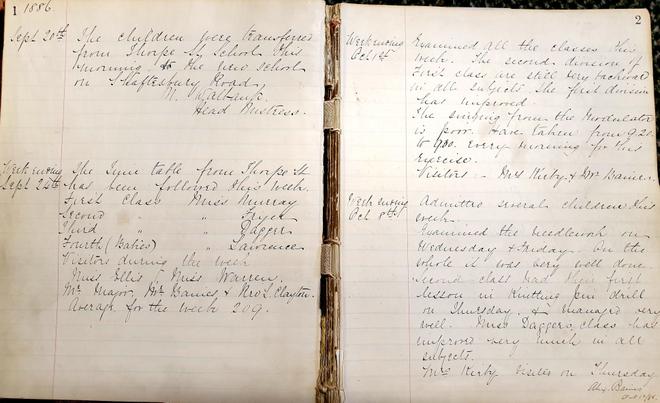 1 1886.
Sept 20th The children were transferred
from Thorpe St. Schools this
morning to the new school
on Shaftesbury Road.
M. Walbank.
Head Mistress.
Week ending The Time table from Thorpe St
Sept 24th has been followed this week.
First Class Miss Murray
Second " " Fryer
Third " " Dagger
Fourth (Babies) " Lawrence
Visitors during the week
Miss Ellis & Miss Warren,
Mr Major, Mr Baines, & Mrs S. Clayton.
Average for the week 209.
2
Week ending Examined all the classes this
Oct 1st week. The second division of
First class are still very backward
in all subjects. The first division
has improved.
The singing from the Modulator
is poor. Have taken from 9.20
to every morning for this
exercise.
Visitors - Mrs Kirby & Mr Baines.
Week ending Admitted several children this
Oct 8th week.
Examined the needlework on
Wednesday & Friday. On the
whole it was very well done.
Second class had their first
lesson in Knitting Pin drill
on Thursday, & managed very
well. Miss Daggers class has
improved very much in all
subjects.
Mrs Kirby visited on Thursday
Alex. Baines